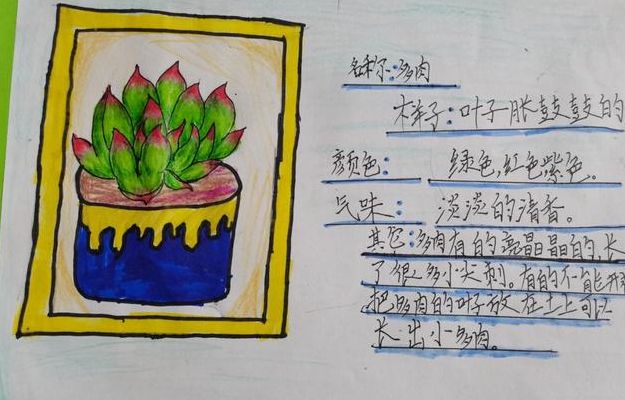 名称:多肉
样子:叶子胀鼓鼓的
颜色: 绿色,红色紫色。
气味: 淡淡的清香。
其它:多肉有的亮晶晶的,长
了很多小尖刺。有的不能开
把多肉的叶子放在土上可以
长出小多肉。